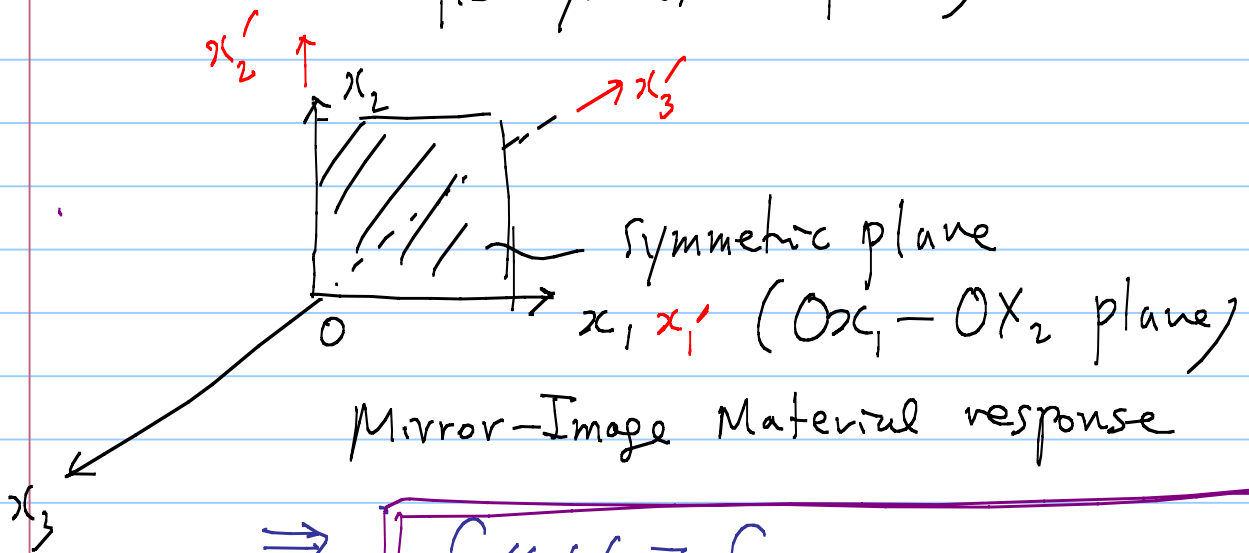 x₂′
x₂
x₃′
symmetric plane
O
x₁ x₁′ (Ox₁ – OX₂ plane)
Mirror-Image Material response
x₃
⇒